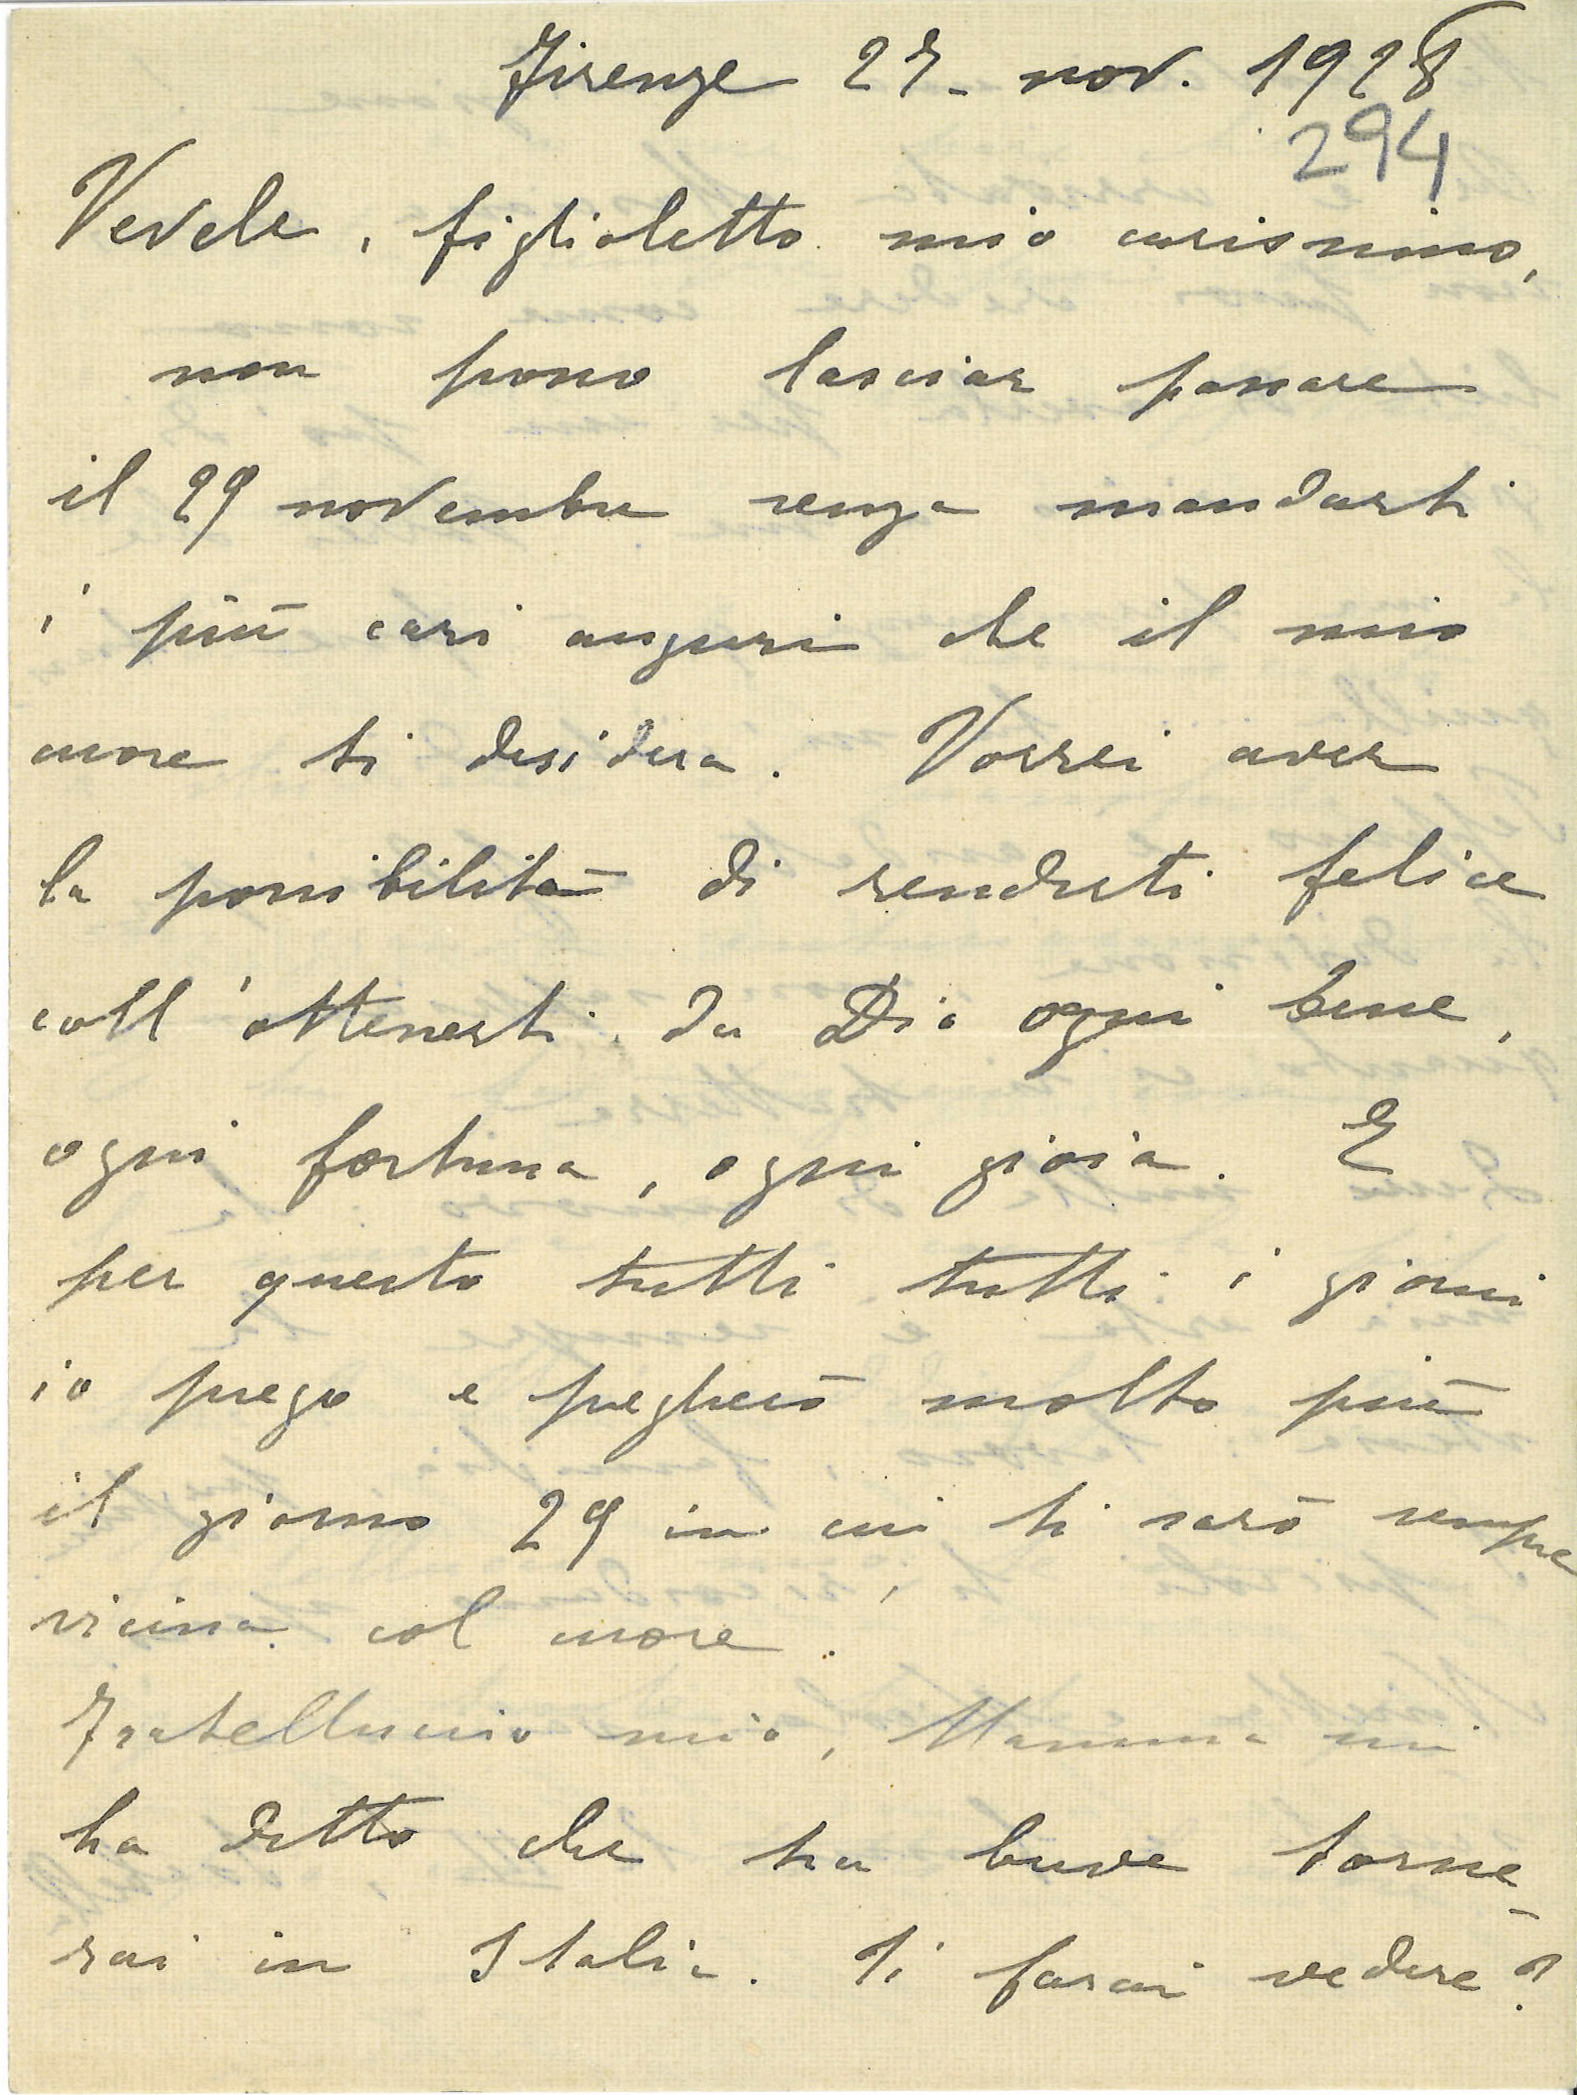 Firenze 27- nov. 1928
294
Vevele, figlioletto mio carissimo,
non posso lasciar passare
il 29 novembre senza mandarti
i più cari auguri che il mio
cuore ti desidera. Vorrei aver
la possibilità di renderti felice
coll'ottenerti da Dio ogni bene,
ogni fortuna, ogni gioia. E
per questo tutti tutti i giorni
io prego e pregherò molto più
il giorno 29 in cui ti sarò sempre
vicina col cuore.
Fratelluccio mio, Mamma mi
ha detto che tra breve torne-
rai in Italia. Ti farai vedere?